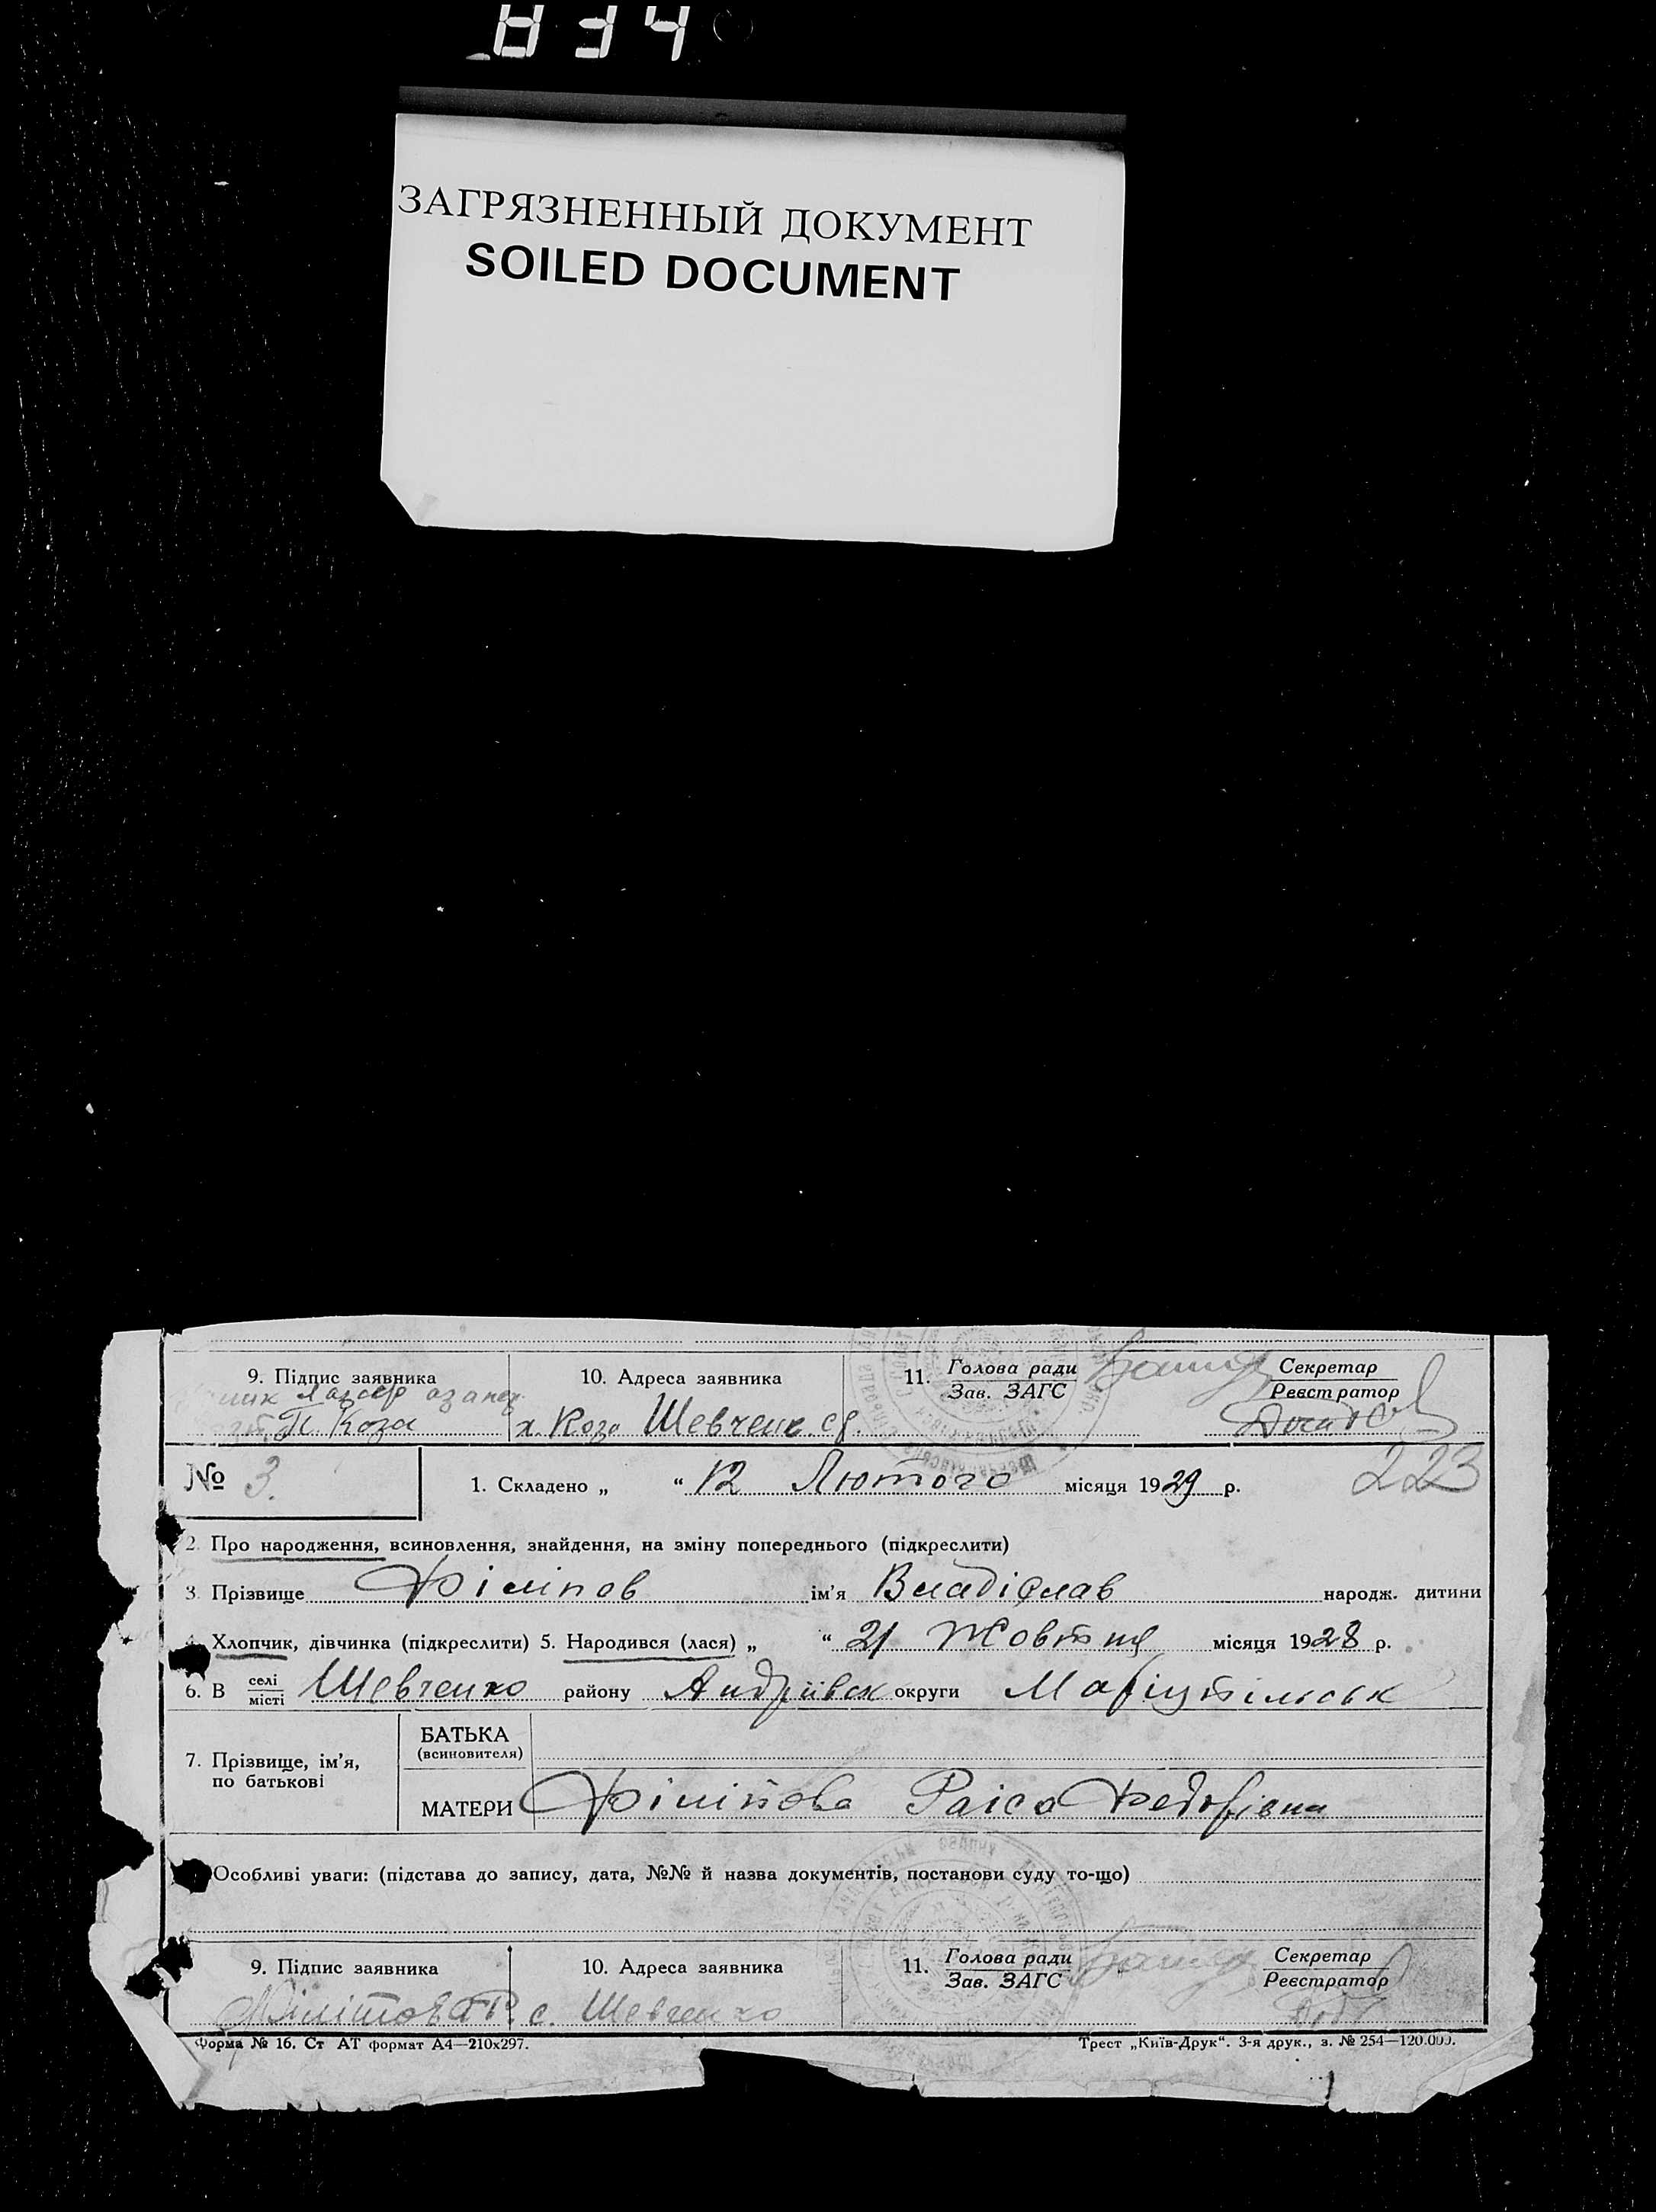 ЗАГРЯЗНЕННЫЙ ДОКУМЕНТ
SOILED DOCUMENT
9. Підпис заявника 10. Адреса заявника 11. Голова ради Секретар
Зав. ЗАГС Реєстратор
П. Коза х. Коза Шевченк. с/
№ 3. 1. Складено „ “ 12 Лютого місяця 1929 р. 223
2. Про народження, всиновлення, знайдення, на зміну попереднього (підкреслити)
3. Прізвище Філіпов ім'я Владіслав народж. дитини
4. Хлопчик, дівчинка (підкреслити) 5. Народився (лася) „ “ 21 Жовтня місяця 1928 р.
6. В селі Шевченко району Андріївськ округи Маріупільськ
місті
7. Прізвище, ім'я, по батькові
БАТЬКА
(всиновителя)
МАТЕРИ Філіпова Раіса Федорівна
Особливі уваги: (підстава до запису, дата, №№ й назва документів, постанови суду то-що)
9. Підпис заявника 10. Адреса заявника 11. Голова ради Секретар
Зав. ЗАГС Реєстратор
Філіпова Р. с. Шевченко
Форма № 16. Ст АТ формат А4—210х297. Трест „Київ-Друк“. 3-я друк., з. № 254—120.000.